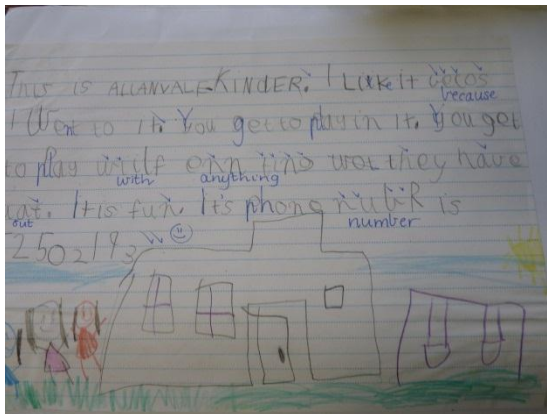 THIS IS ALLANVALE KINDER. I Like it cocos
because
I Went to it. You get to play in it. You get
to play wiilf enn ting wot they have
with anything
out. It is fun. It's phone nubR is
out number
2502193